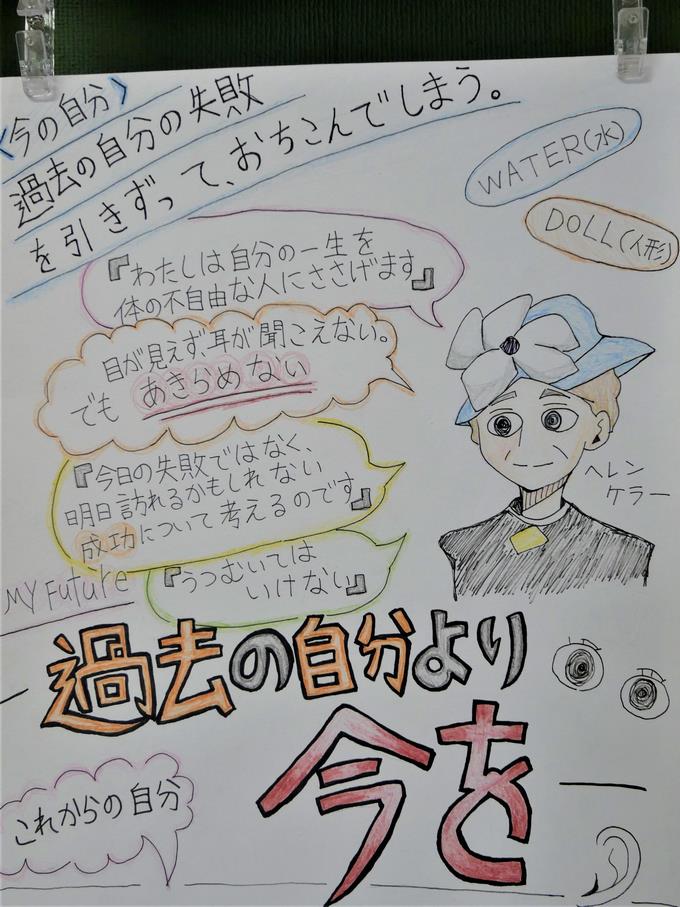 〈今の自分〉
過去の自分の失敗
を引きずって、おちこんでしまう。
WATER(水)
DOLL(人形)
『わたしは自分の一生を
体の不自由な人にささげます』
目が見えず、耳が聞こえない。
でも あきらめない
『今日の失敗ではなく、
明日訪れるかもしれない
成功について考えるのです』
ヘレン
ケラー
MY Future
『うつむいては
いけない』
過去の自分より
今を
これからの自分